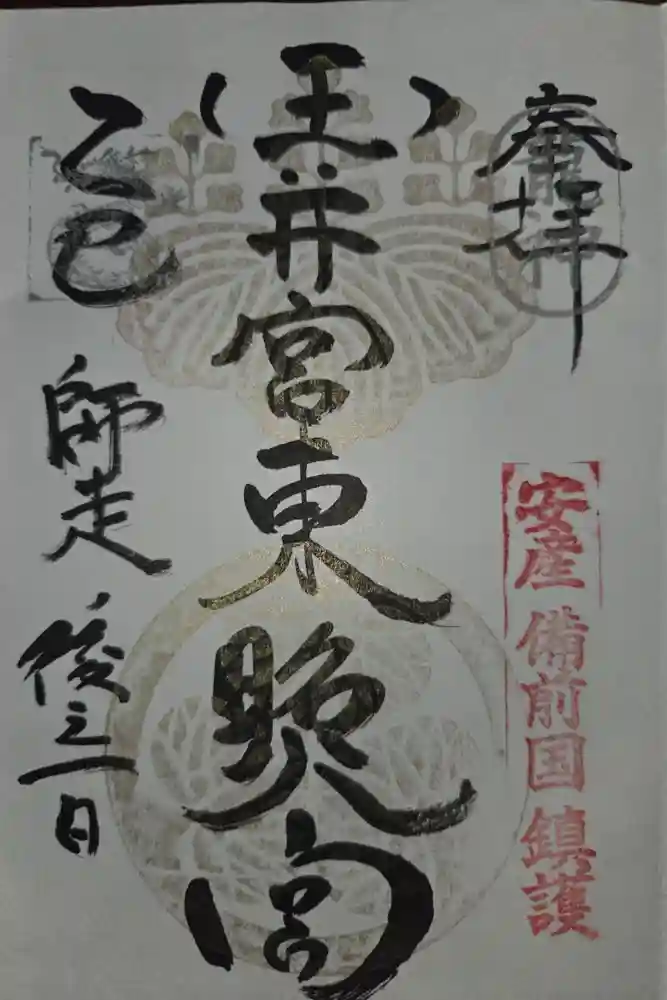 奉拝
安産 備前国 鎮護
玉井宮東照宮
乙巳 師走 後之一日